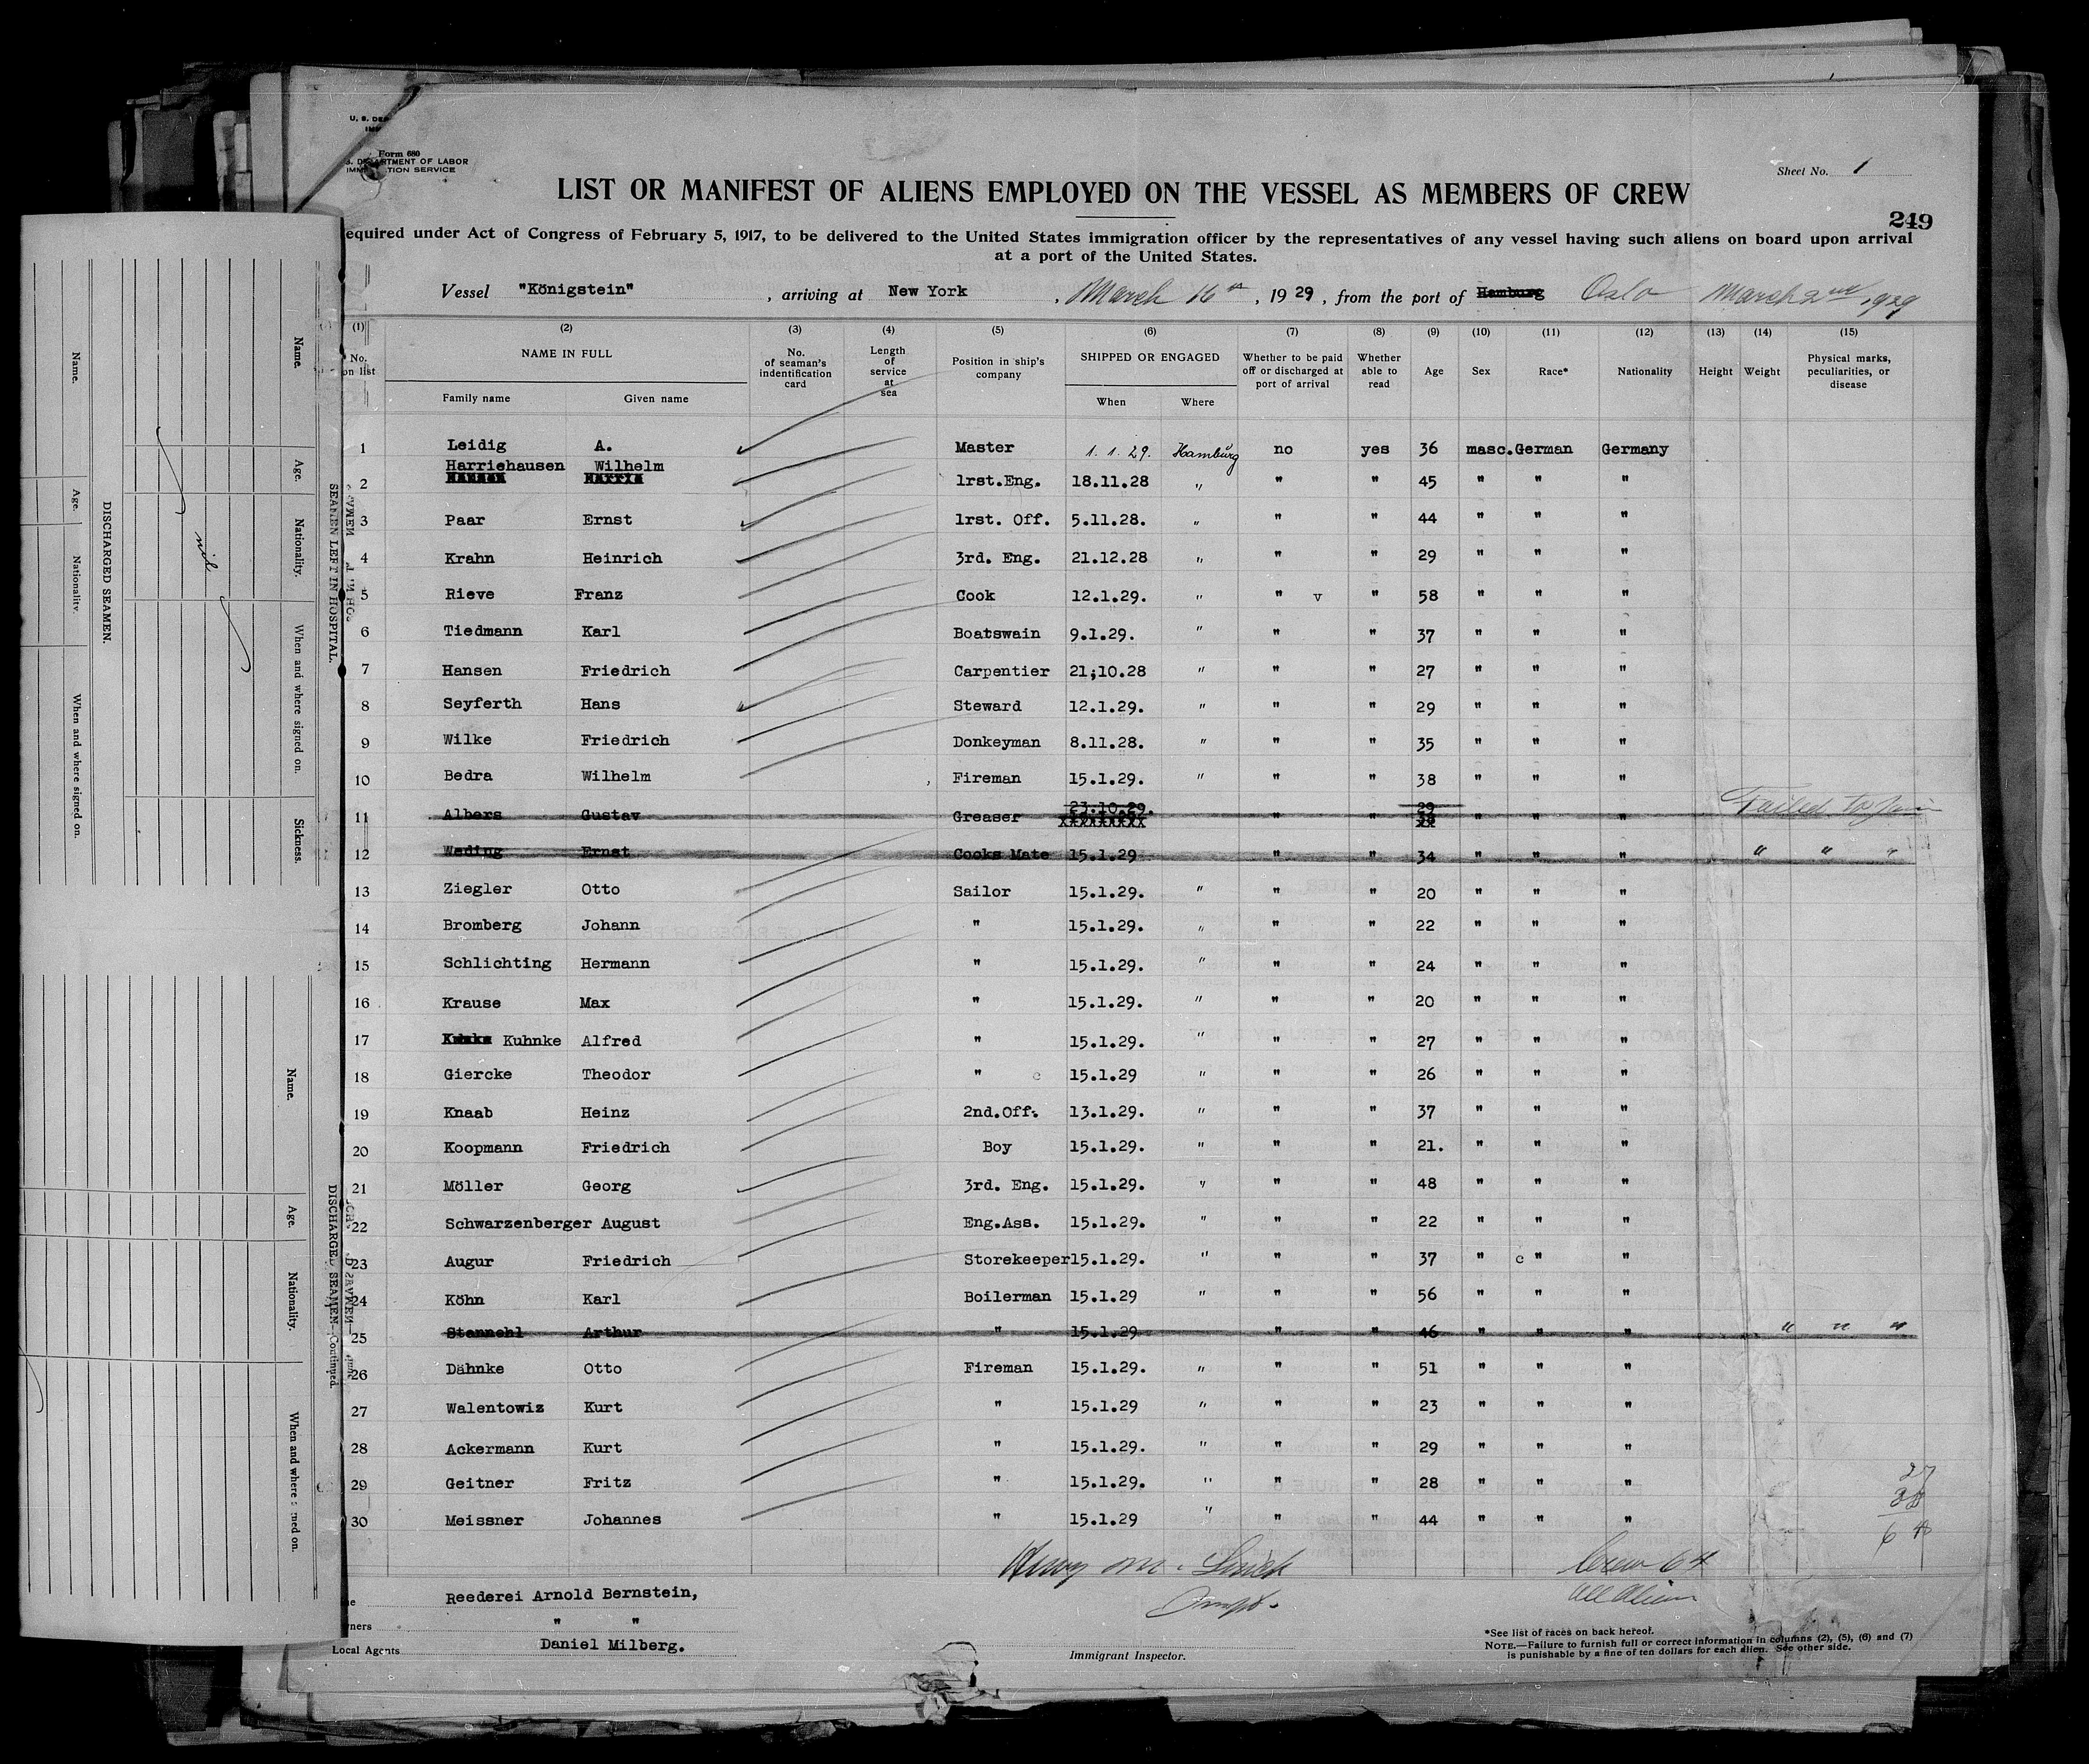 U. S. DEP
IM
Form 680
S. DEPARTMENT OF LABOR
IMM TION SERVICE
Sheet No. 1
LIST OR MANIFEST OF ALIENS EMPLOYED ON THE VESSEL AS MEMBERS OF CREW
249
equired under Act of Congress of February 5, 1917, to be delivered to the United States immigration officer by the representatives of any vessel having such aliens on board upon arrival
at a port of the United States.
Vessel "Königstein", arriving at New York, March 16th, 1929, from the port of Hamburg Oslo March 2nd, 1929
(1) (2) (3) (4) (5) (6) (7) (8) (9) (10) (11) (12) (13) (14) (15)
No. on list NAME IN FULL No. of seaman's indentification card Length of service at sea Position in ship's company SHIPPED OR ENGAGED Whether to be paid off or discharged at port of arrival Whether able to read Age Sex Race* Nationality Height Weight Physical marks, peculiarities, or disease
Family name Given name When Where
1 Leidig A. Master 1. 1. 29. Hamburg no yes 36 masc. German Germany
Harriehausen Wilhelm
2 1rst.Eng. 18.11.28 " " " 45 " " "
3 Paar Ernst 1rst. Off. 5.11.28. " " " 44 " " "
4 Krahn Heinrich 3rd. Eng. 21.12.28 " " " 29 " " "
5 Rieve Franz Cook 12.1.29. " " v " 58 " " "
6 Tiedmann Karl Boatswain 9.1.29. " " " 37 " " "
7 Hansen Friedrich Carpentier 21;10.28 " " " 27 " " "
8 Seyferth Hans Steward 12.1.29. " " " 29 " " "
9 Wilke Friedrich Donkeyman 8.11.28. " " " 35 " " "
10 Bedra Wilhelm Fireman 15.1.29. " " " 38 " " "
11 Albers Gustav Greaser 23.10.29. xxxxxxxxx " " 29 " " " Failed to Join
12 Wading Ernst Cooks Mate 15.1.29 " " 34 " " " " " "
13 Ziegler Otto Sailor 15.1.29. " " " 20 " " "
14 Bromberg Johann " 15.1.29. " " " 22 " " "
15 Schlichting Hermann " 15.1.29. " " " 24 " " "
16 Krause Max " 15.1.29. " " " 20 " " "
17 Kuhnke Alfred " 15.1.29. " " " 27 " " "
18 Giercke Theodor " c 15.1.29 " " " 26 " " "
19 Knaab Heinz 2nd.Off. 13.1.29. " " " 37 " " "
20 Koopmann Friedrich Boy 15.1.29. " " " 21. " " "
21 Möller Georg 3rd. Eng. 15.1.29. " " " 48 " " "
22 Schwarzenberger August Eng.Ass. 15.1.29. " " " 22 " " "
23 Augur Friedrich Storekeeper 15.1.29. " " " 37 " c " "
24 Köhn Karl Boilerman 15.1.29 " " " 56 " " "
25 Stannehl Arthur " 15.1.29 " " 46 " " " " " "
26 Dähnke Otto Fireman 15.1.29. " " " 51 " " "
27 Walentowiz Kurt " 15.1.29 " " " 23 " " "
28 Ackermann Kurt " 15.1.29. " " " 29 " " "
29 Geitner Fritz " 15.1.29. " " " 28 " " "
30 Meissner Johannes " 15.1.29 " " " 44 " " "
27
6 4
Henry M.
Crew 64
All Alien
Reederei Arnold Bernstein,
ners " "
Local Agents Daniel Milberg.
Immigrant Inspector.
*See list of races on back hereof.
NOTE.—Failure to furnish full or correct information in columns (2), (5), (6) and (7)
is punishable by a fine of ten dollars for each alien. See other side.
Name. Age. Nationality. When and where signed on.
DISCHARGED SEAMEN.
Name. Age. Nationality. When and where signed on. Sickness.
nil
SEAMEN LEFT IN HOSPITAL.
Name. Age. Nationality. When and where ned on.
DISCHARGED SEAMEN—Continued.